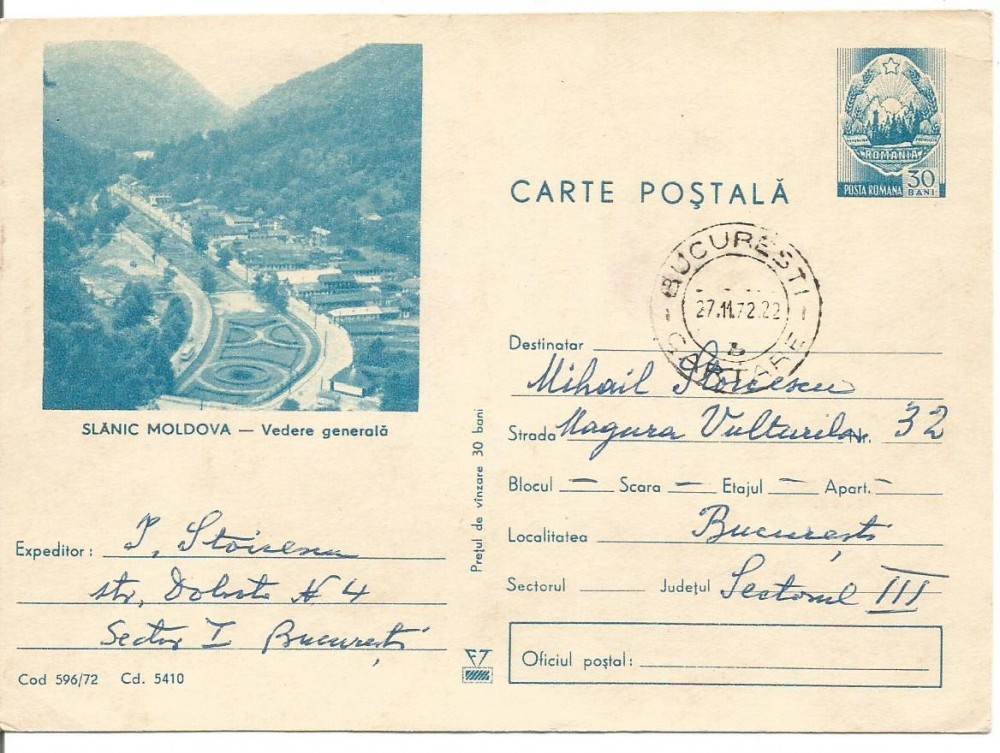 SLĂNIC MOLDOVA — Vedere generală
Expeditor: P. Stoicescu
str,
Sector I București
Cod 596/72 Cd. 5410
Prețul de vînzare 30 bani
ROMANIA
POSTA ROMANA 30 BANI
CARTE POȘTALĂ
BUCUREȘTI
27.11.72.22
CARTARE
Destinatar Mihail Stoicescu
Strada Magura Vulturilor Nr. 32
Blocul — Scara — Etajul — Apart. —
Localitatea București
Sectorul Județul Sectorul III
Oficiul poștal: